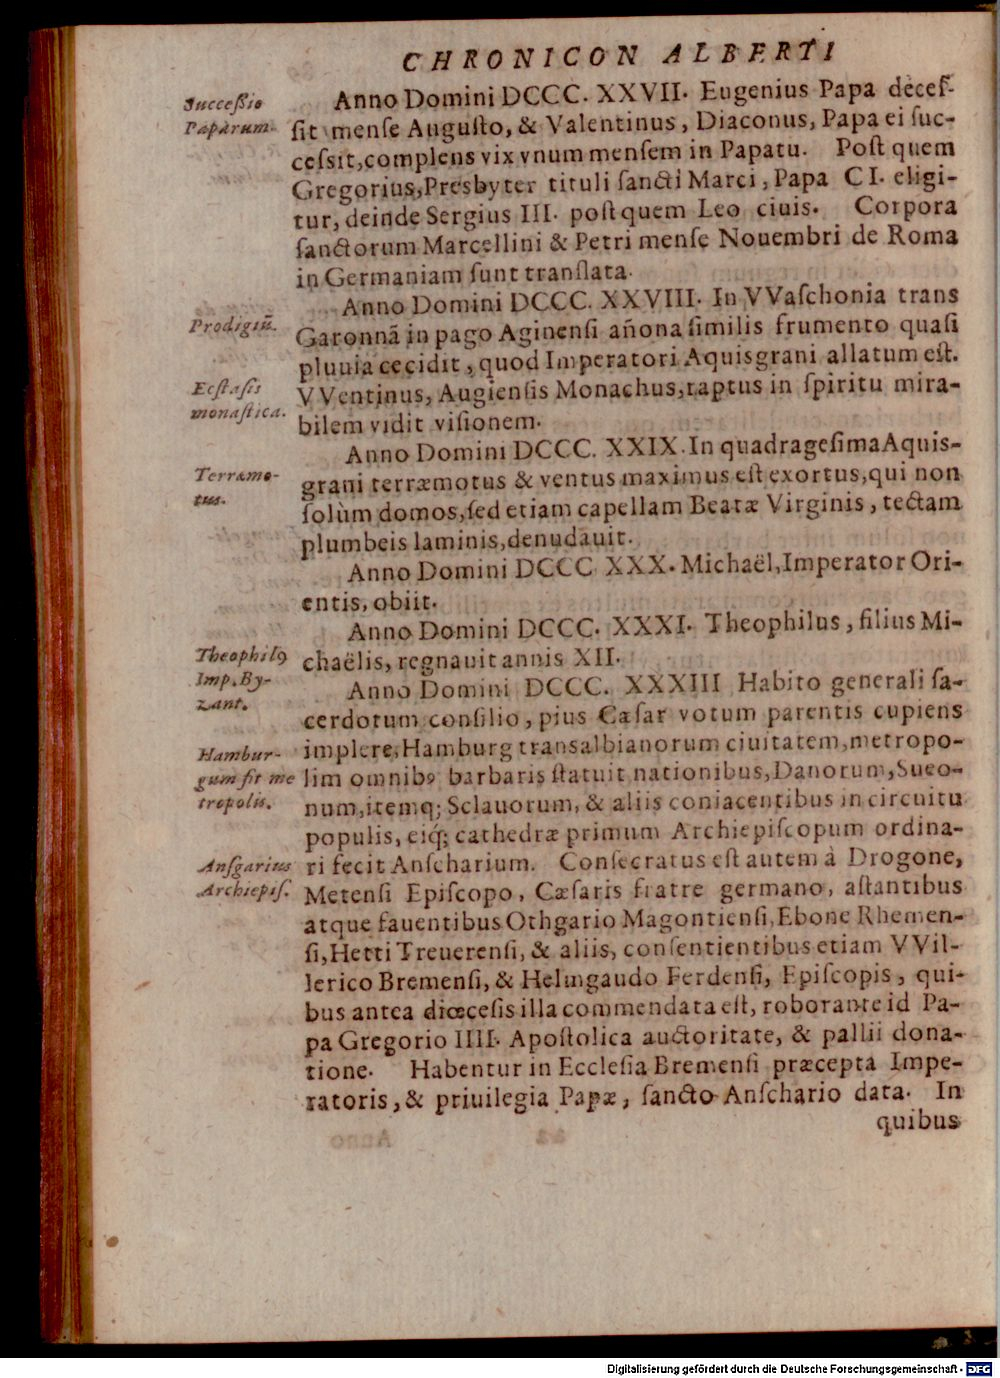 CHRONICON ALBERTI
Succeſsio
Paparum.
Anno Domini DCCC. XXVII. Eugenius Papa deceſ-
ſit menſe Auguſto, & Valentinus, Diaconus, Papa ei ſuc-
ceſsit, complens vix vnum menſem in Papatu. Poſt quem
Gregorius, Presbyter tituli ſancti Marci, Papa CI. eligi-
tur, deinde Sergius III. poſt quem Leo ciuis. Corpora
ſanctorum Marcellini & Petri menſe Nouembri de Roma
in Germaniam ſunt tranſlata.
Prodigiũ.
Anno Domini DCCC. XXVIII. In VVaſchonia trans
Garonnã in pago Aginenſi añona ſimilis frumento quaſi
pluuia cecidit, quod Imperatori Aquisgrani allatum eſt.
Ecſtaſis
monaſtica.
VVentinus, Augienſis Monachus, raptus in ſpiritu mira-
bilem vidit viſionem.
Terræmo-
tus.
Anno Domini DCCC. XXIX. In quadrageſima Aquis-
grani terræmotus & ventus maximus eſt exortus, qui non
ſolùm domos, ſed etiam capellam Beatæ Virginis, tectam
plumbeis laminis, denudauit.
Anno Domini DCCC XXX. Michaël, Imperator Ori-
entis, obiit.
Theophilꝰ
Imp. By-
zant.
Anno Domini DCCC. XXXI. Theophilus, filius Mi-
chaëlis, regnauit annis XII.
Anno Domini DCCC. XXXIII Habito generali ſa-
cerdotum conſilio, pius Cæſar votum parentis cupiens
Hambur-
gum fit me
tropolis.
implere, Hamburg transalbianorum ciuitatem, metropo-
lim omnibꝰ barbaris ſtatuit nationibus, Danorum, Sueo-
num, itemq; Sclauorum, & aliis coniacentibus in circuitu
populis, eiq́; cathedræ primum Archiepiſcopum ordina-
Anſgarius
Archiepiſ.
ri fecit Anſcharium. Conſecratus eſt autem à Drogone,
Metenſi Epiſcopo, Cæſaris fratre germano, aſtantibus
atque fauentibus Othgario Magontienſi, Ebone Rhemen-
ſi, Hetti Treuerenſi, & aliis, conſentientibus etiam VVil-
lerico Bremenſi, & Helingaudo Ferdenſi, Epiſcopis, qui-
bus antea diœceſis illa commendata eſt, roborante id Pa-
pa Gregorio IIII. Apoſtolica auctoritate, & pallii dona-
tione. Habentur in Eccleſia Bremenſi præcepta Impe-
ratoris, & priuilegia Papæ, ſancto Anſchario data. In
quibus
Digitalisierung gefördert durch die Deutsche Forschungsgemeinschaft - DFG